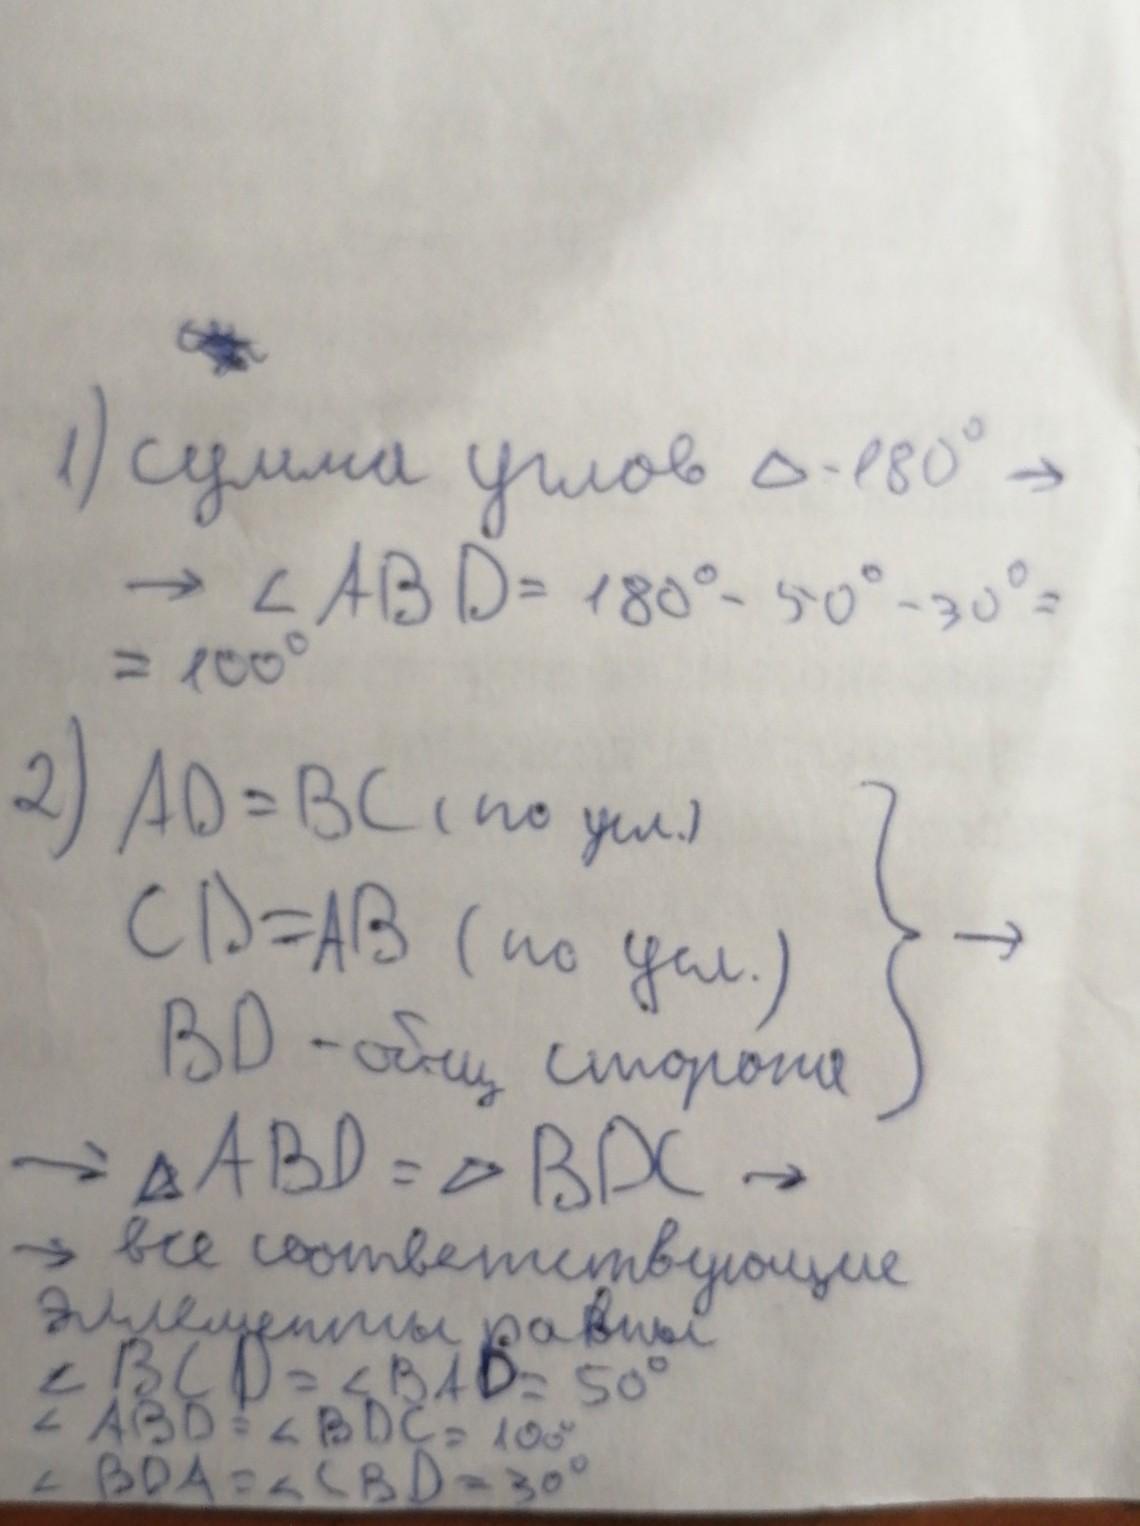 1) сумма углов △ - 180° →
→ ∠ABD = 180° - 50° - 30° =
= 100°
2) AD = BC (по усл.)
CD = AB (по усл.)
BD - общ сторона
→ △ABD = △BDC →
→ все соответствующие
эллементы равны
∠BCD = ∠BAD = 50°
∠ABD = ∠BDC = 100°
∠BDA = ∠CBD = 30°